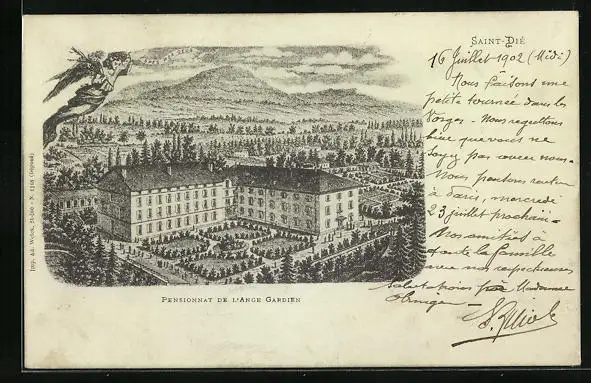 SAINT-DIÉ
16 Juillet 1902 (Midi)
Nous faisons une
petite tournée dans les
Vosges - Nous regrettons
bien que vous ne
soyez pas avec nous.
Nous partons
à Paris, mercredi
23 juillet prochain -
Nos amitiés à
toute la famille
avec nos respectueuses
salutations pour Madame
Imp. Ad. Weick, St-Dié - N. 1248 (Déposé)
PENSIONNAT DE L'ANGE GARDIEN